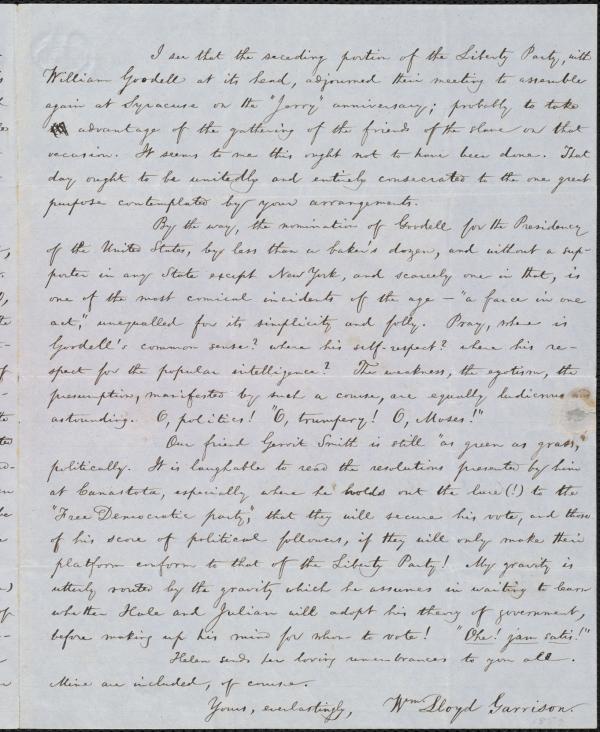 I see that the seceding portion of the Liberty Party, with
William Goodell at its head, adjourned their meeting to assemble
again at Syracuse on the "Jerry" anniversary; probably to take
advantage of the gathering of the friends of the slave on that
occasion. It seems to me this ought not to have been done. That
day ought to be unitedly and entirely consecrated to the one great
purpose contemplated by your arrangements.
By the way, the nomination of Goodell for the Presidency
of the United States, by less than a baker's dozen, and without a sup-
porter in any State except New York, and scarcely one in that, is
one of the most comical incidents of the age — "a farce in one
act," unequalled for its simplicity and folly. Pray, where is
Goodell's common sense? where his self-respect? where his re-
spect for the popular intelligence? The weakness, the egotism, the
presumption, manifested by such a course, are equally ludicrous and
astounding. O, politics! "O, trumpery! O, Moses!"
Our friend Gerrit Smith is still "as green as grass,"
politically. It is laughable to read the resolutions presented by him
at Canastota, especially where he holds out the lure (!) to the
"Free Democratic party," that they will secure his vote, and those
of his score of political followers, if they will only make their
platform conform to that of the Liberty Party! My gravity is
utterly routed by the gravity which he assumes in waiting to learn
whether Hale and Julian will adopt his theory of government,
before making up his mind for whom to vote! "Ohe! jam satis!"
Helen sends her loving remembrances to you all.
Mine are included, of course.
Yours, everlastingly, Wm. Lloyd Garrison.